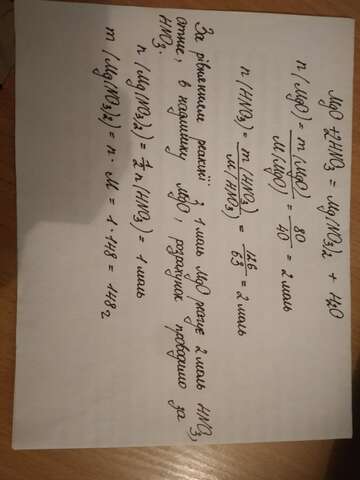 MgO + 2HNO3 = Mg(NO3)2 + H2O
n(MgO) = m(MgO)/M(MgO) = 80/40 = 2 моль
n(HNO3) = m(HNO3)/M(HNO3) = 126/63 = 2 моль
За рівнянням реакції з 1 моль MgO реагує 2 моль HNO3,
отже, в надлишку MgO, розрахунок проводимо за
HNO3.
n(Mg(NO3)2) = 1/2 n(HNO3) = 1 моль
m(Mg(NO3)2) = n · M = 1 · 148 = 148 г